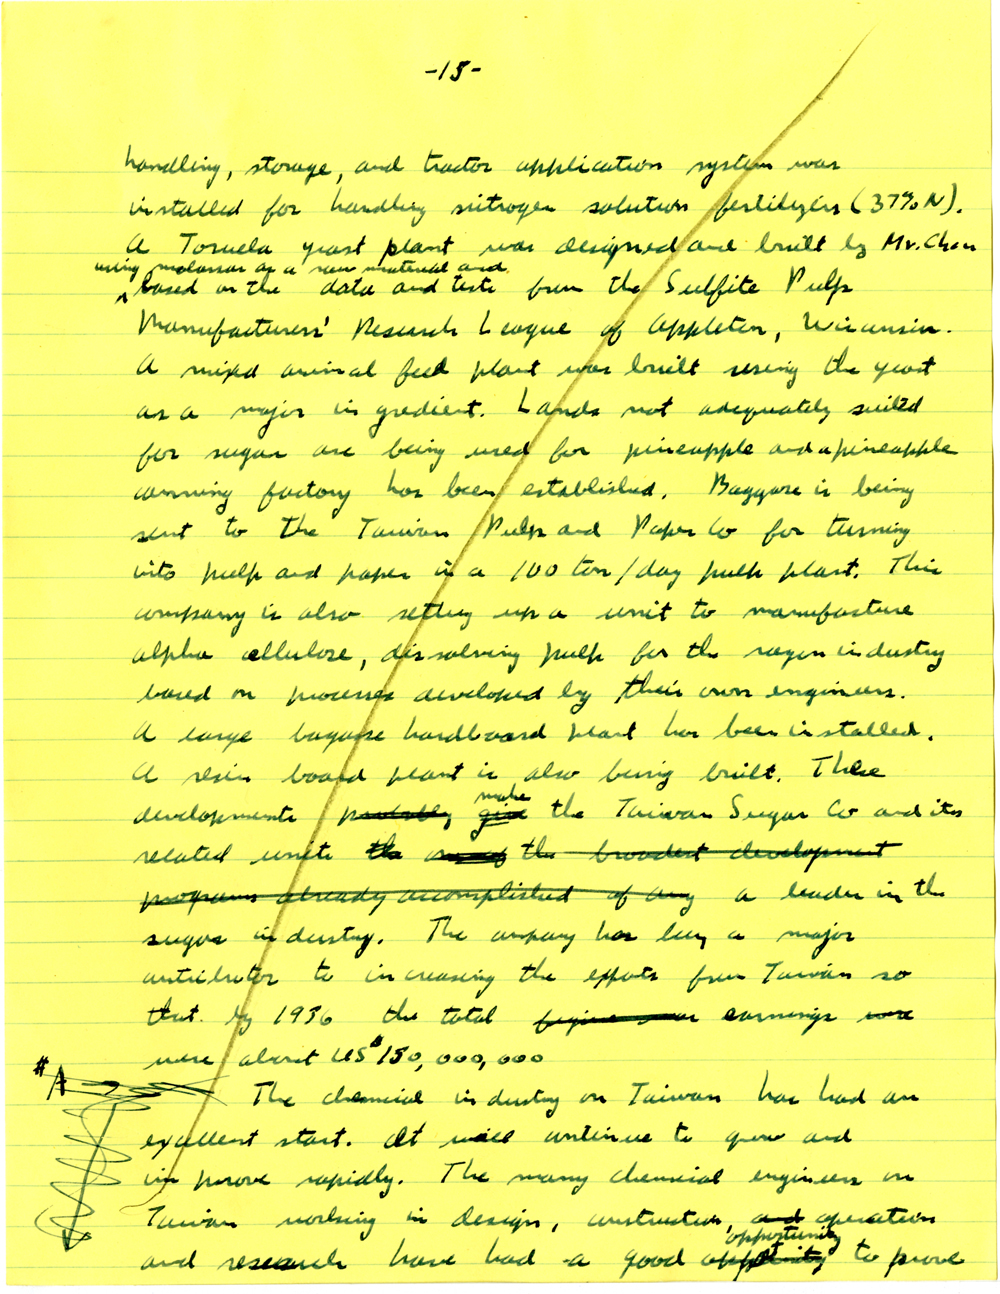 -15-
handling, storage, and tractor application system was
installed for handling nitrogen solution fertilizers (37% N).
A Toruela yeast plant was designed and built by Mr. Chen
using molasses as a raw material and
based on the data and tests from the Sulfite Pulp
Manufacturers' Research League of Appleton, Wisconsin.
A mixed animal feed plant was built using the yeast
as a major ingredient. Lands not adequately suited
for sugar are being used for pineapple and a pineapple
canning factory has been established. Baggase is being
sent to the Taiwan Pulp and Paper Co for turning
into pulp and paper in a 100 ton/day pulp plant. This
company is also setting up a unit to manufacture
alpha cellulose, dissolving pulp for the rayon industry
based on processes developed by their own engineers.
A large bagasse hardboard plant has been installed.
A resin board plant is also being built. These
make
developments probably give the Taiwan Sugar Co and its
related units the one of the broadest development
programs already accomplished of any a leader in the
sugar industry. The company has been a major
contributor to increasing the exports from Taiwan so
that by 1956 the total earnings were
were about US $150,000,000
#A
The chemical industry on Taiwan has had an
excellent start. It will continue to grow and
improve rapidly. The many chemical engineers on
Taiwan working in design, construction, and operation
opportunity
and research have had a good to prove